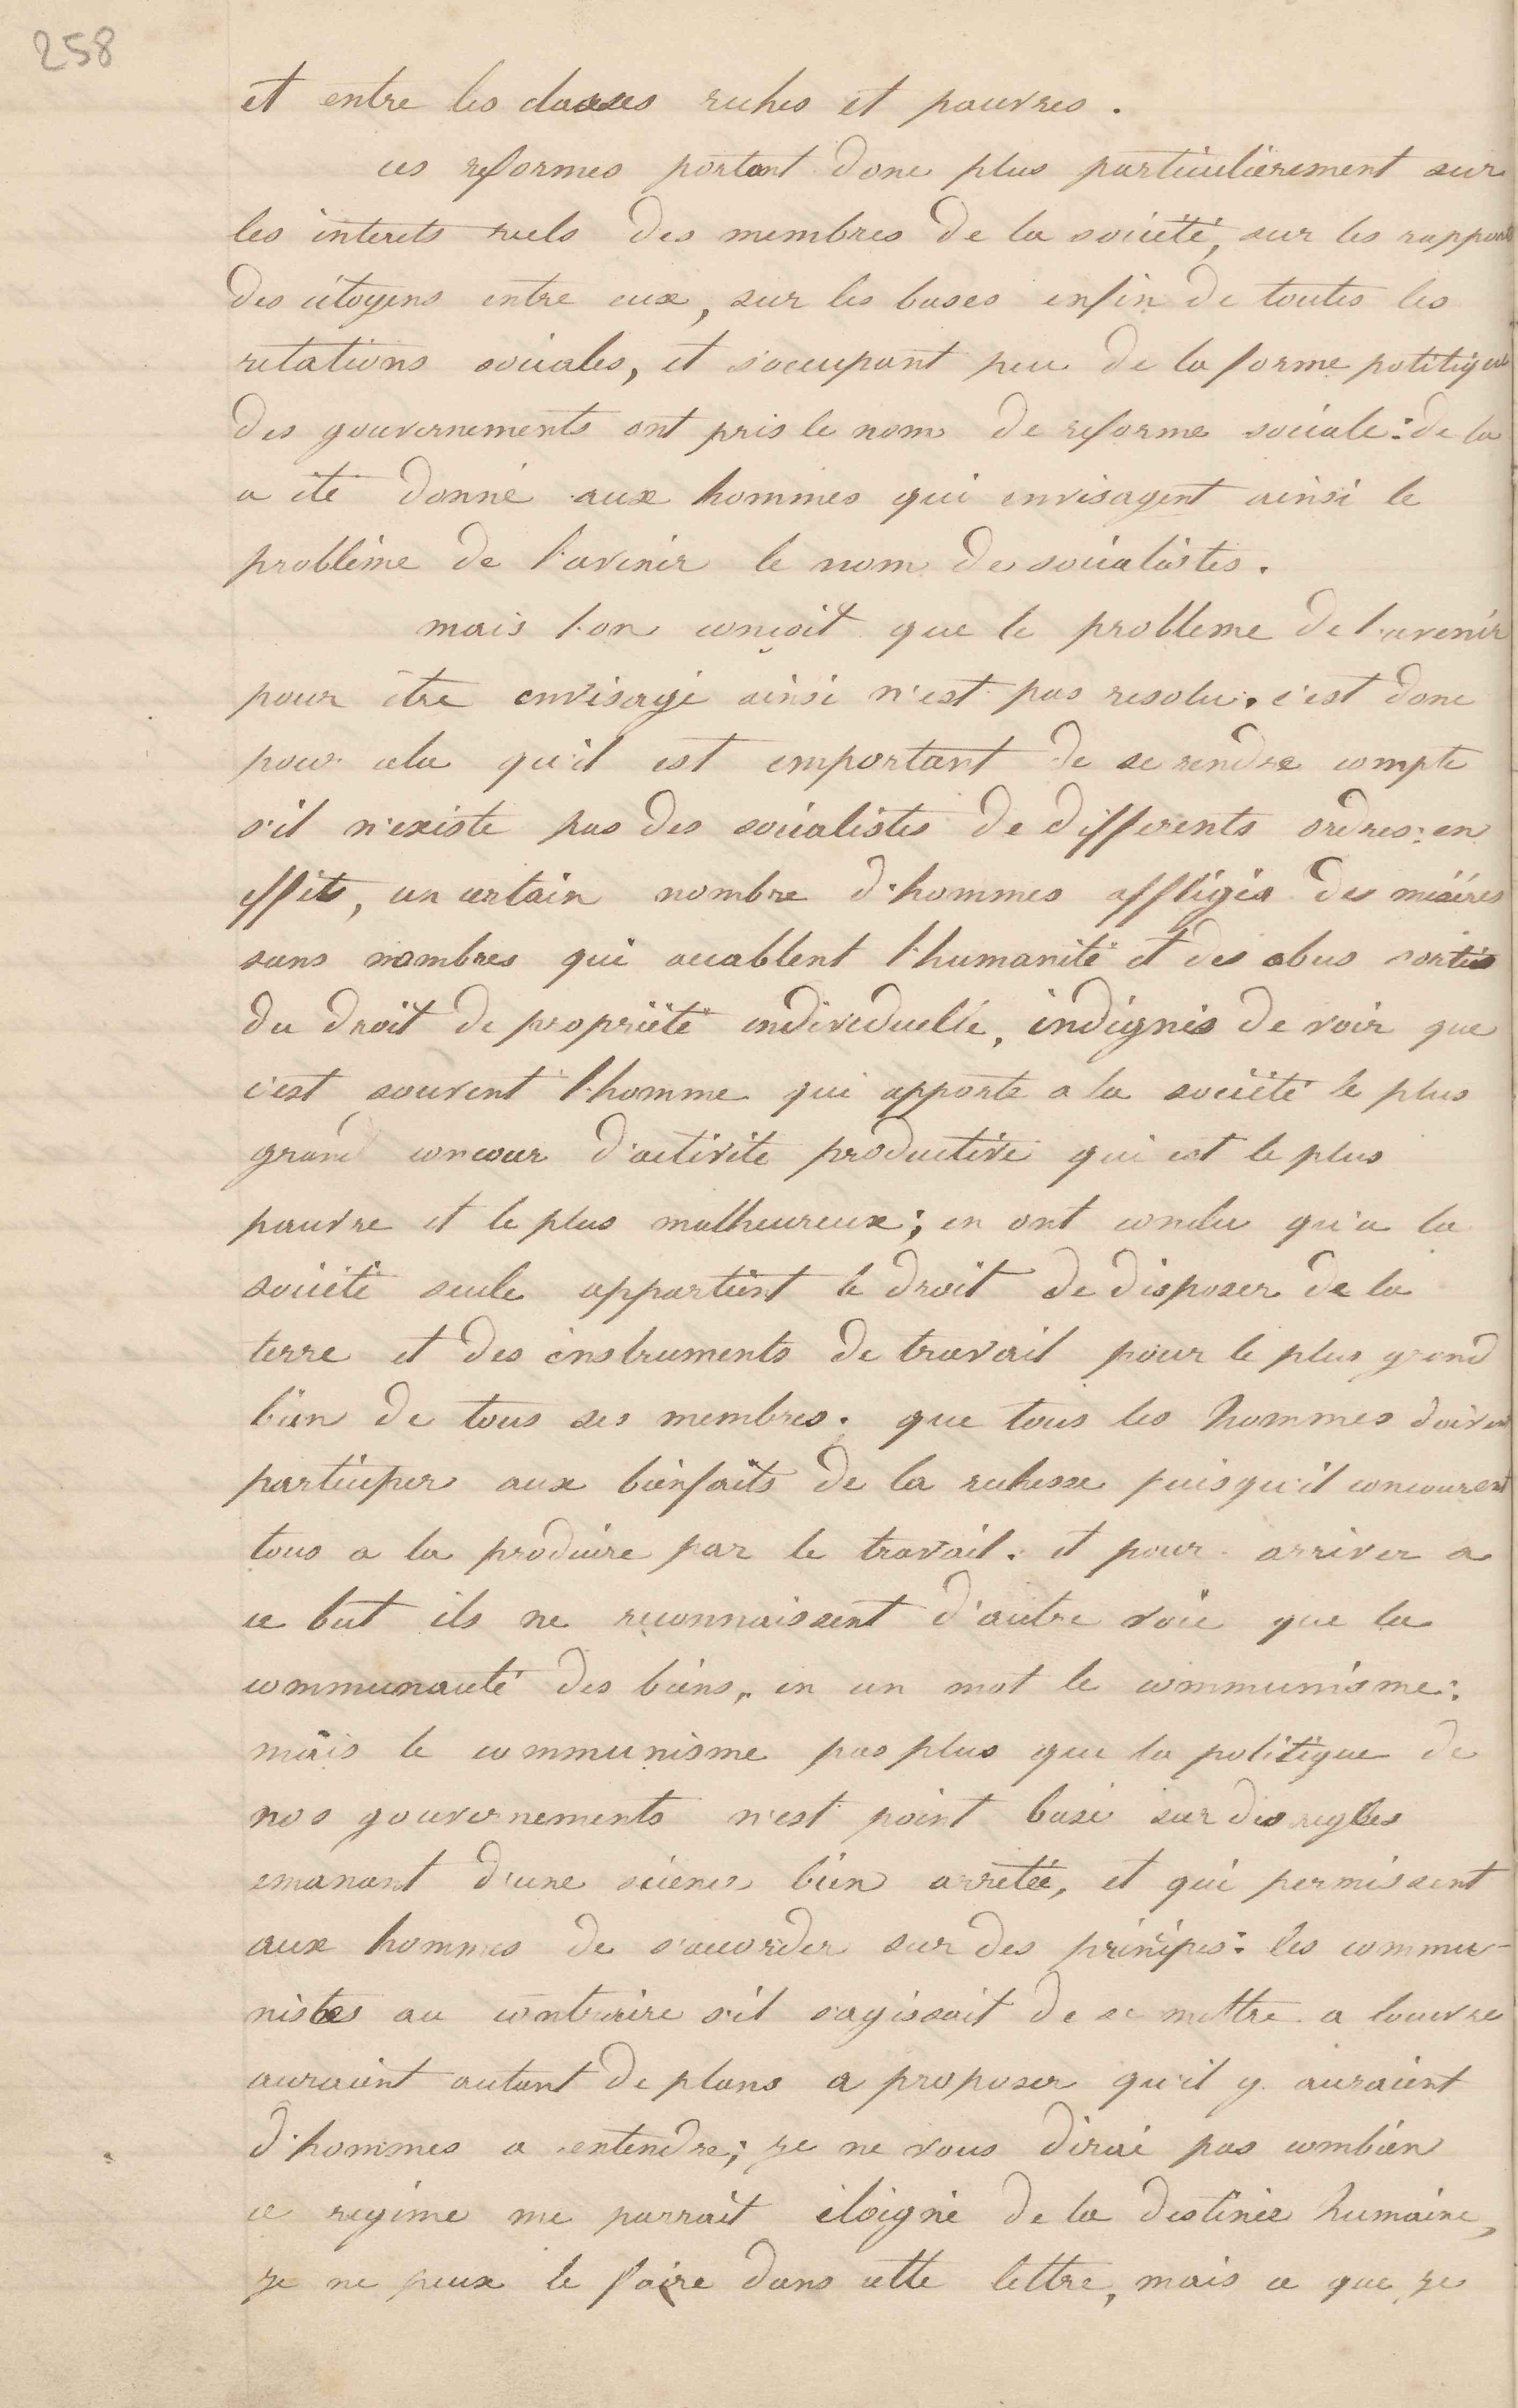 258
et entre les classes riches et pauvres.
ces reformes portant donc plus particulièrement sur
les interets reels des membres de la société, sur les rapports
des citoyens entre eux, sur les bases enfin de toutes les
relations sociales, et s'occupant peu de la forme politique
des gouvernements ont pris le nom de reforme sociale: de la
a été donné aux hommes qui envisagent ainsi le
problème de l'avenir le nom de socialistes.
mais l'on conçoit que le probleme de l'avenir
pour être envisagé ainsi n'est pas resolu. c'est donc
pour cela qu'il est important de se rendre compte
s'il n'existe pas des socialistes de differents ordres: en
effets, un certain nombre d'hommes affligés des misères
sans nombres qui accablent l'humanité et des abus sortis
du droit de propriété individuelle, indignés de voir que
c'est souvent l'homme qui apporte a la société le plus
grand concour d'activité productive qui est le plus
pauvre et le plus malheureux; en ont conclu qu'a la
société seule appartient le droit de disposer de la
terre et des instruments de travail pour le plus grand
bien de tous ses membres. que tous les hommes doivent
participer aux bienfaits de la richesse puisqu'il concourent
tous a la produire par le travail. et pour arriver a
ce but ils ne reconnaissent d'autre voie que la
communauté des biens, en un mot le communisme:
mais le communisme pas plus que la politique de
nos gouvernements n'est point basé sur des regles
emanant d'une science bien arretée, et qui permissent
aux hommes de s'accorder sur des principes: les commu-
nistes au contraire s'il s'agissait de se mettre a louvre
auraient autant de plans a proposer qu'il y auraient
d'hommes a entendre; je ne vous dirai pas combien
ce regime me parrait éloigné de la destinée humaine,
je ne peux le faire dans cette lettre, mais ce que je